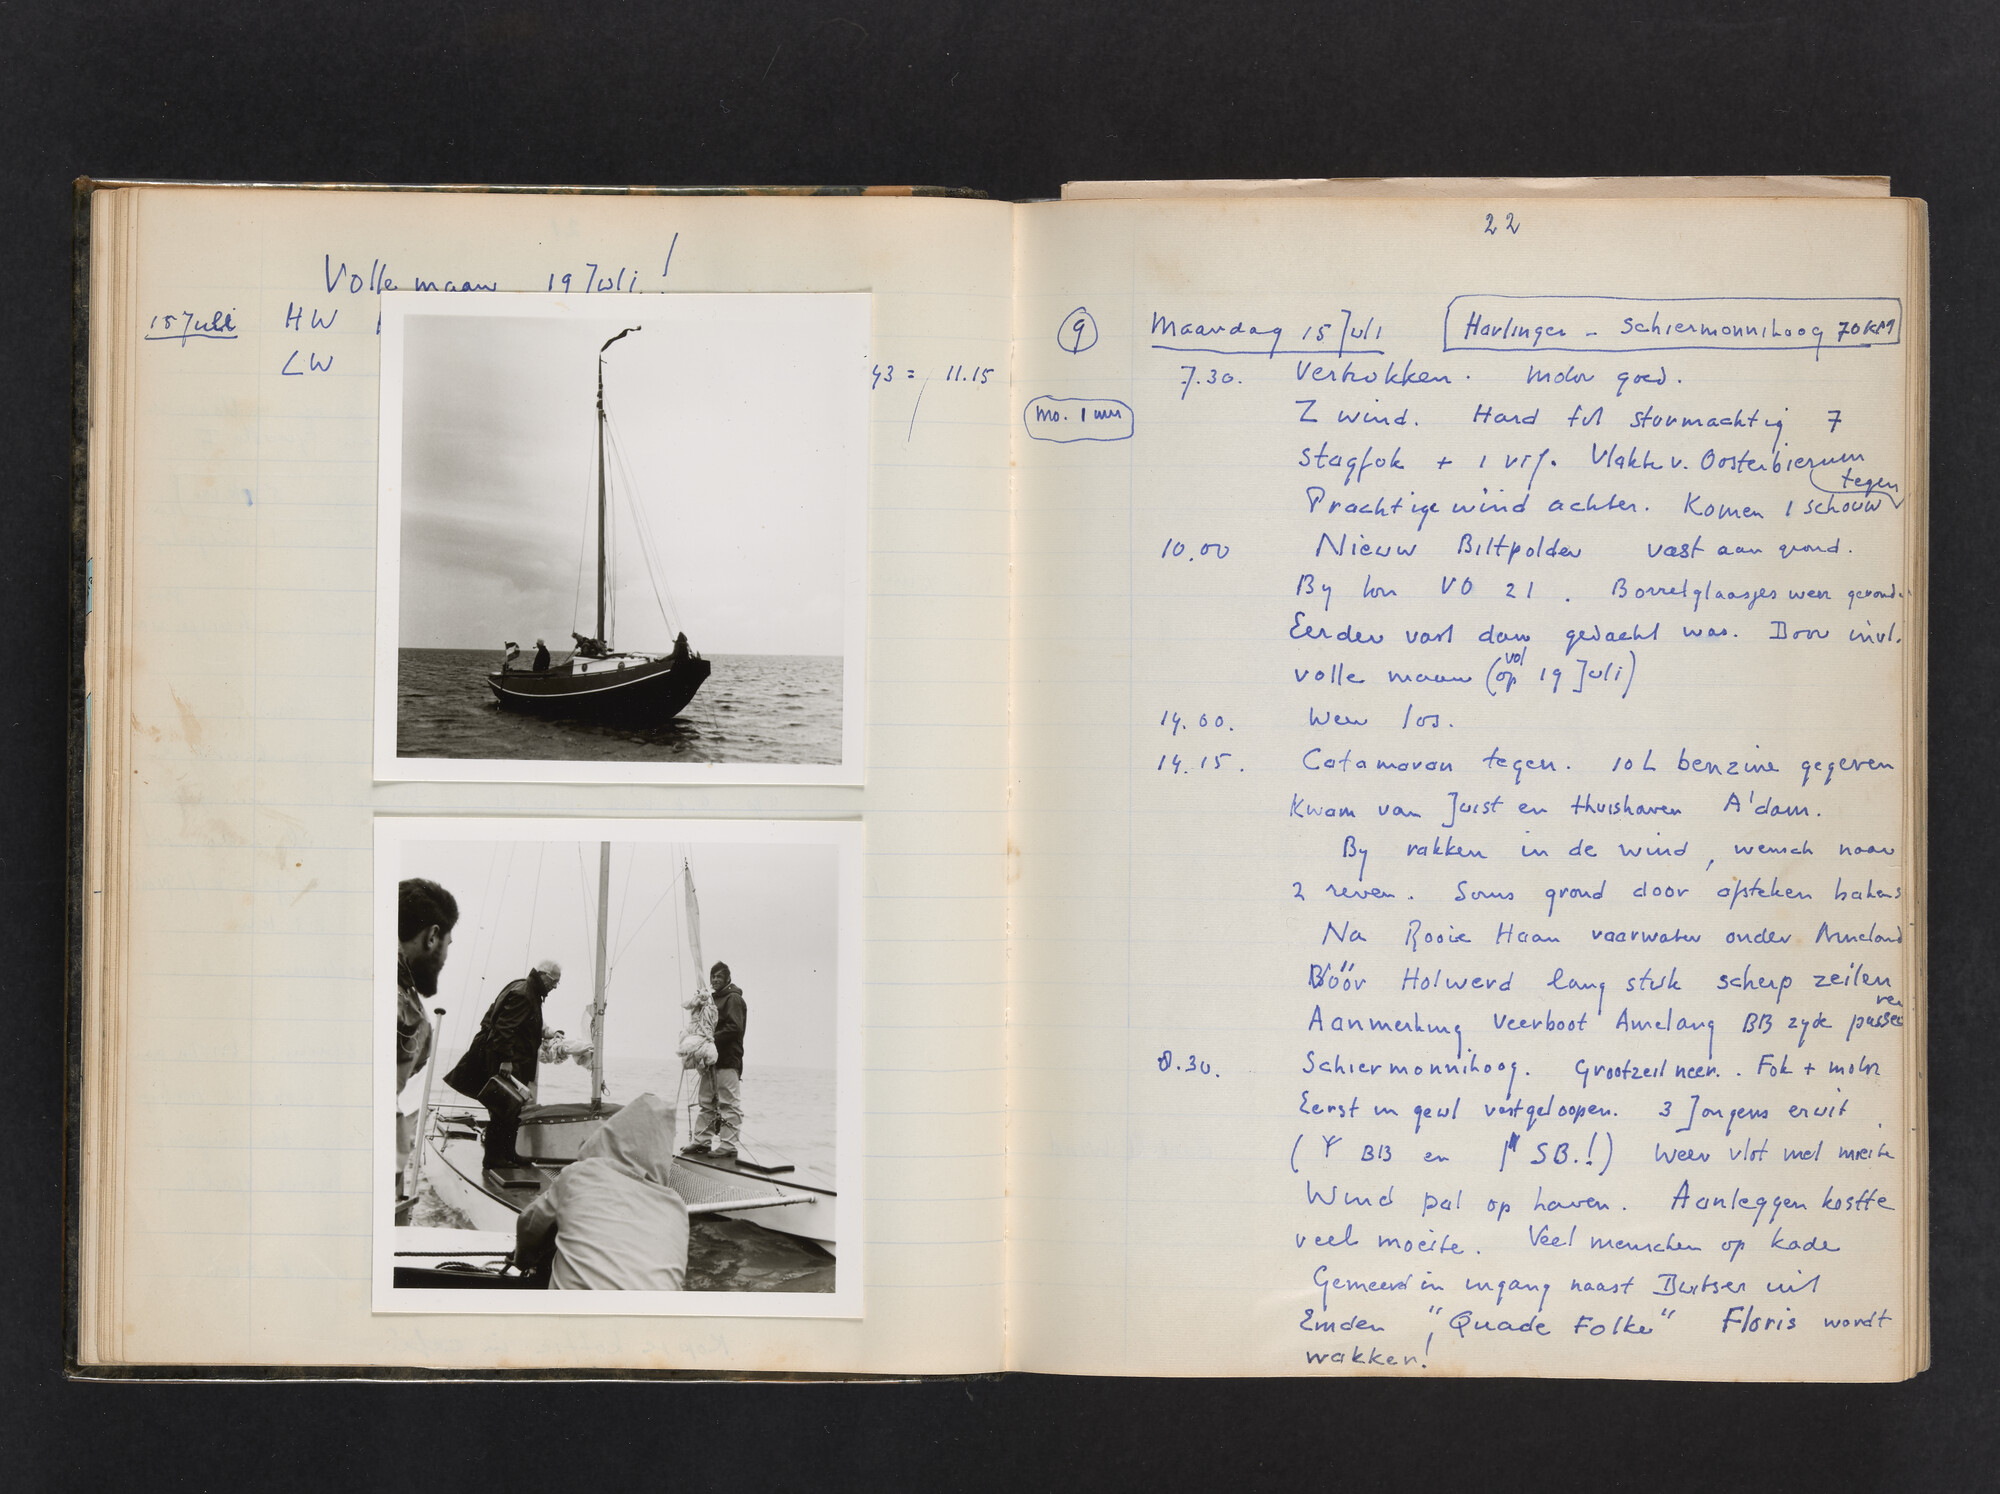 Volle maan 19 Juli!
15 Juli HW
LW 43 = 11.15
22
9 Maandag 15 Juli Harlingen - Schiermonnikoog 70 KM
7.30. Vertrokken. Motor goed.
mo. 1 uur
Z wind. Hard tot stormachtig 7
Stagfok + 1 rif. Vlakte v. Oosterbierum
tegen
Prachtige wind achter. Komen 1 schouw
10.00 Nieuw Biltpolder vast aan grond.
By ton VO 21. Borrelglaasjes weer gevonde.
Eerder vast dan gedacht was. Door invl.
volle maan (vol op 19 Juli)
14.00. Weer los.
14.15. Catamaran tegen. 10 L benzine gegeven
Kwam van Juist en thuishaven A'dam.
By rakken in de wind, wensch naar
2 reven. Soms grond door afsteken bakens
Na Rooie Haan vaarwater onder Ameland
Vóór Holwerd lang stuk scherp zeilen
Aanmerking veerboot Amelang BB zyde passeren
8.30. Schiermonnikoog. Grootzeil neer. Fok + motor
Eerst in geul vastgeloopen. 3 Jongens eruit
( BB en SB.!) Weer vlot met moeite
Wind pal op haven. Aanleggen kostte
veel moeite. Veel menschen op kade
Gemeerd in ingang naast Butser uit
Emden "Quade Folke" Floris wordt
wakker!